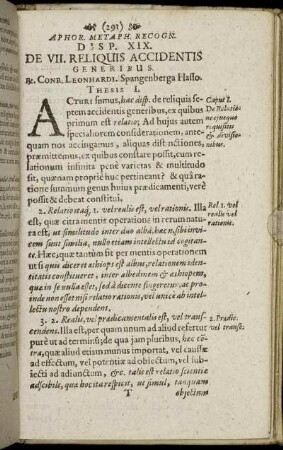 (291)
APHOR. METAPH. RECOGN.
DISP. XIX.
DE VII. RELIQUIS ACCIDENTIS
GENERIBUS.
R. CONR. LEONHARDI. Spangenberga Hasso.
THESIS I.
ACTURI sumus, hac disp. de reliquis se-
ptem accidentis generibus, ex quibus
primum est relatio; Ad hujus autem
specialiorem considerationem, ante-
quam nos accingamus, aliquas distinctiones,
præmittemus, ex quibus constare possit, cum re-
lationum infinita penè varietas & multitudo
sit, quænam propriè huc pertineant? & quâ ra-
tione summum genus hujus prædicamenti, verè
possit & debeat constitui.
Caput I.
De Relatio-
ne; ejusque
requisitis
& divisio-
nibus.
2. Relatio itaq; 1. vel realis est, vel rationis. Illa
est, quæ citra mentis operationem in rerum natu-
ra est; ut similitudo inter duo alba. hæc n. sibi invi-
cem sunt similia, nullo etiam intellectu id cogitan-
te. Hæc, quæ tantùm fit per mentis operationem
ut si quis diceret æthiops est albus, relationem iden-
titatis constitueret, inter albedinem & æthiopem,
quæ in se nulla esset, sed à dicente fingeretur: ac pro-
inde non esset nisi relatio rationis, vel unicè ab intel-
lectu nostro dependens.
Rel: 1. vel
realis vel
rationis.
3. 2. Realis, vel prædicamentalis est, vel trans-
cendens. Illa est, per quam unum ad aliud refertur
purè ut ad terminũ; de qua jam pluribus, hæc cõ-
tra, quæ aliud etiam munus importat, vel causæ
ad effectum, vel potentiæ ad objectum, vel sub-
jecti ad adjunctum, &c. talis est relatio scientiæ
ad scibile, quæ hoc ita respicit, ut simul, tanquam
2. Prædic.
vel transc.
T
objectum